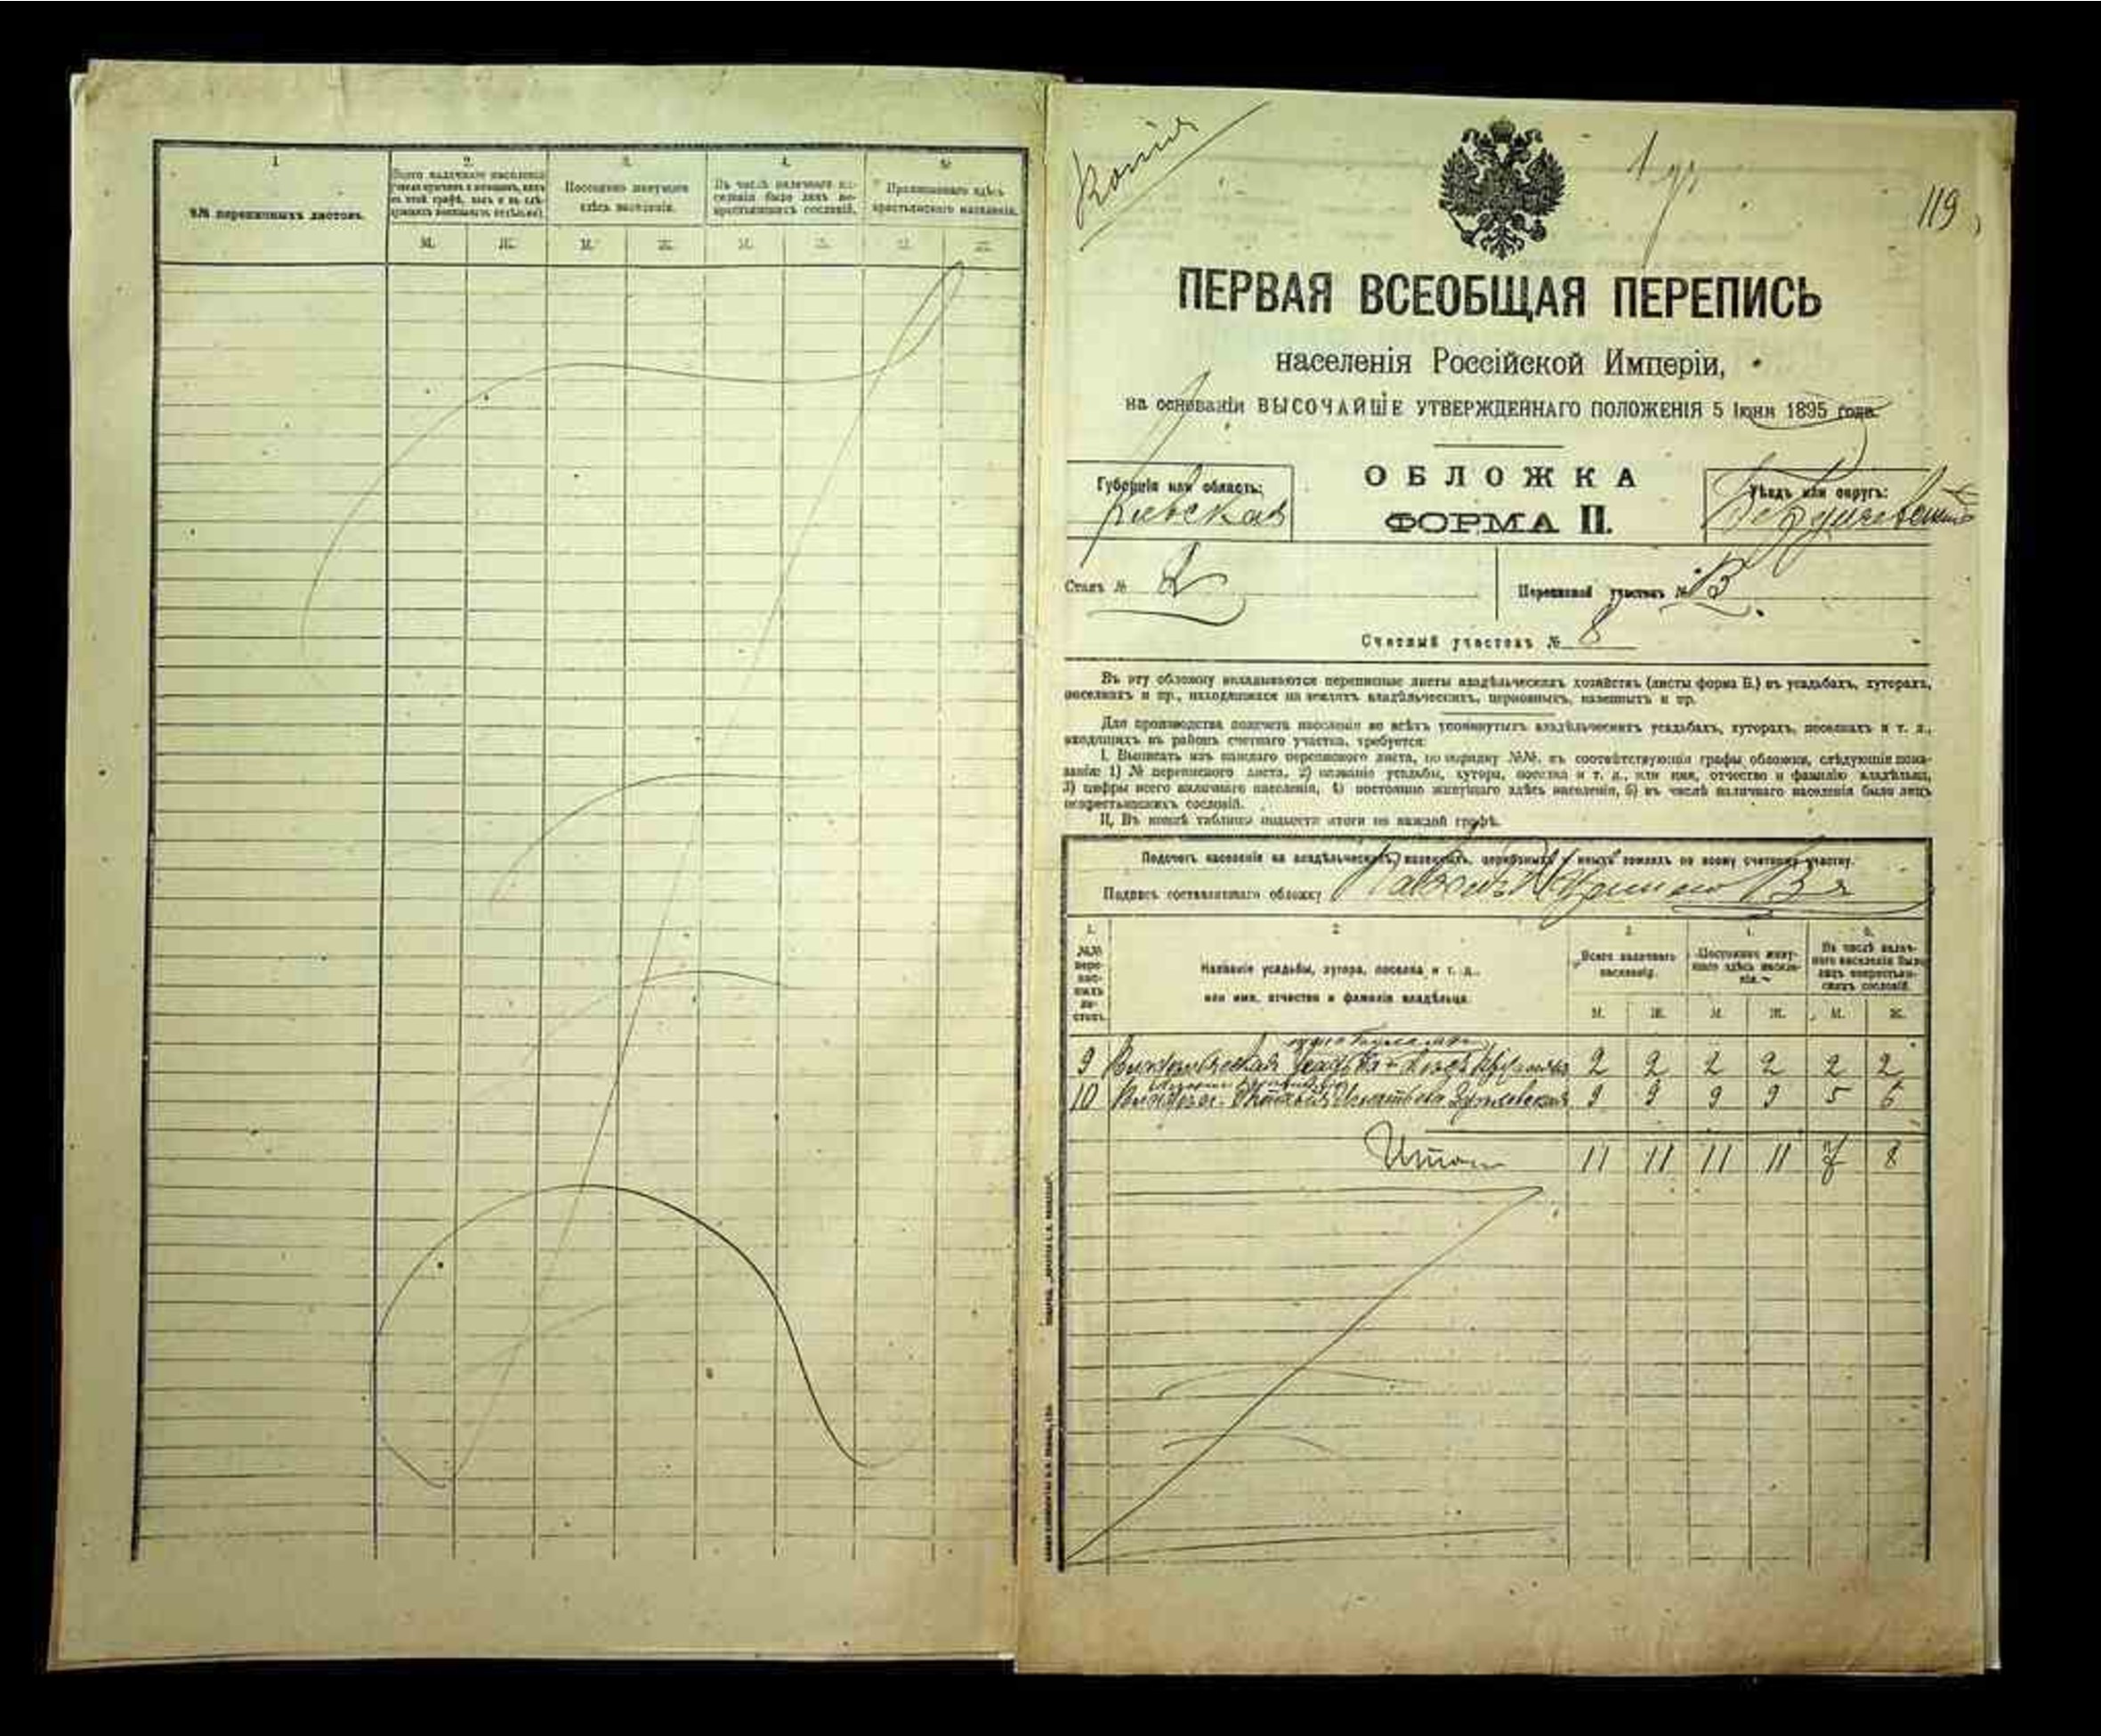 1
№№ переписныхъ листовъ.
2.
Всего наличнаго населенія
3.
Постоянно живущаго
здѣсь населенія.
4.
Въ числѣ наличнаго на-
селенія было лицъ не-
крестьянскихъ сословій.
5.
Приписаннаго здѣсь
крестьянскаго населенія.
М. Ж. М. Ж. М. Ж. М. Ж.
Копія
119
ПЕРВАЯ ВСЕОБЩАЯ ПЕРЕПИСЬ
населенія Россійской Имперіи,
на основаніи ВЫСОЧАЙШЕ УТВЕРЖДЕННАГО ПОЛОЖЕНІЯ 5 Іюня 1895 года.
Губернія или область:
Кіевская
ОБЛОЖКА
ФОРМА II.
Уѣздъ или округъ:
Бердичевскій
Станъ № 2
Переписной участокъ №
Счетный участокъ № 8
Въ эту обложку вкладываются переписные листы владѣльческихъ хозяйствъ (листы форма Б.) въ усадьбахъ, хуторахъ,
поселкахъ и пр., находящихся на земляхъ владѣльческихъ, церковныхъ, казенныхъ и пр.
Для производства подсчета населенія во всѣхъ упомянутыхъ владѣльческихъ усадьбахъ, хуторахъ, поселкахъ и т. д.,
входящихъ въ районъ счетнаго участка, требуется:
I. Выписать изъ каждаго переписного листа, по порядку №№, въ соотвѣтствующія графы обложки, слѣдующія пока-
занія: 1) № переписного листа, 2) названіе усадьбы, хутора, поселка и т. д., или имя, отчество и фамилію владѣльца,
3) цифры всего наличнаго населенія, 4) постоянно живущаго здѣсь населенія, 5) въ числѣ наличнаго населенія было лицъ
некрестьянскихъ сословій.
II. Въ концѣ таблицы подвести итоги по каждой графѣ.
Подсчетъ населенія на владѣльческихъ, казенныхъ, церковныхъ и иныхъ земляхъ по всему счетному участку.
Подпись составлявшаго обложку
1.
№№
пере-
пис-
ныхъ
ли-
стовъ.
2
Названіе усадьбы, хутора, поселка и т. д.,
или имя, отчество и фамилія владѣльца.
3.
Всего наличнаго
населенія.
4.
Постоянно живу-
щаго здѣсь населе-
нія.
5.
Въ числѣ налич-
наго населенія было
лицъ некрестьян-
скихъ сословій.
М. Ж. М. Ж. М. Ж.
9 усадьба 2 2 2 2 2 2
10 9 9 9 9 5 6
Итого 11 11 11 11 7 8